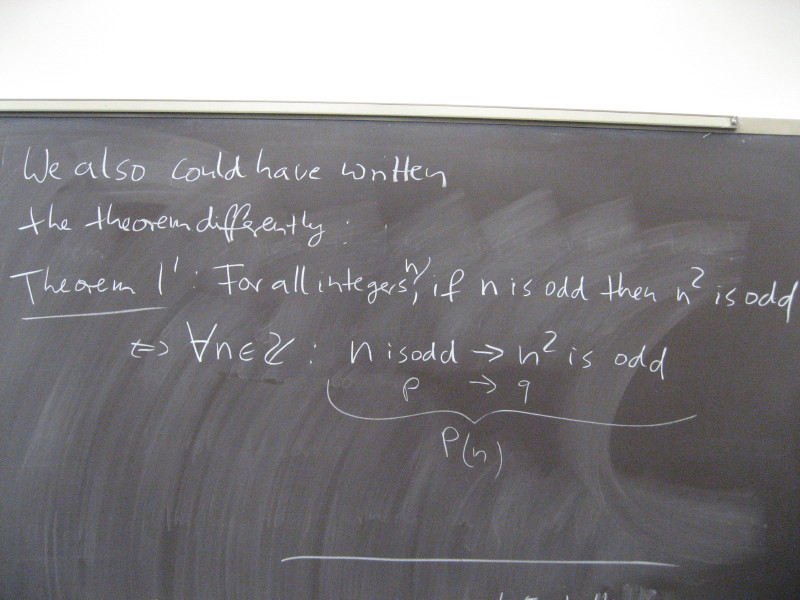 We also could have written
the theorem differently:
Theorem 1': For all integers n, if n is odd then n² is odd
⇔ ∀n∈ℤ: n is odd → n² is odd
p → q
P(n)